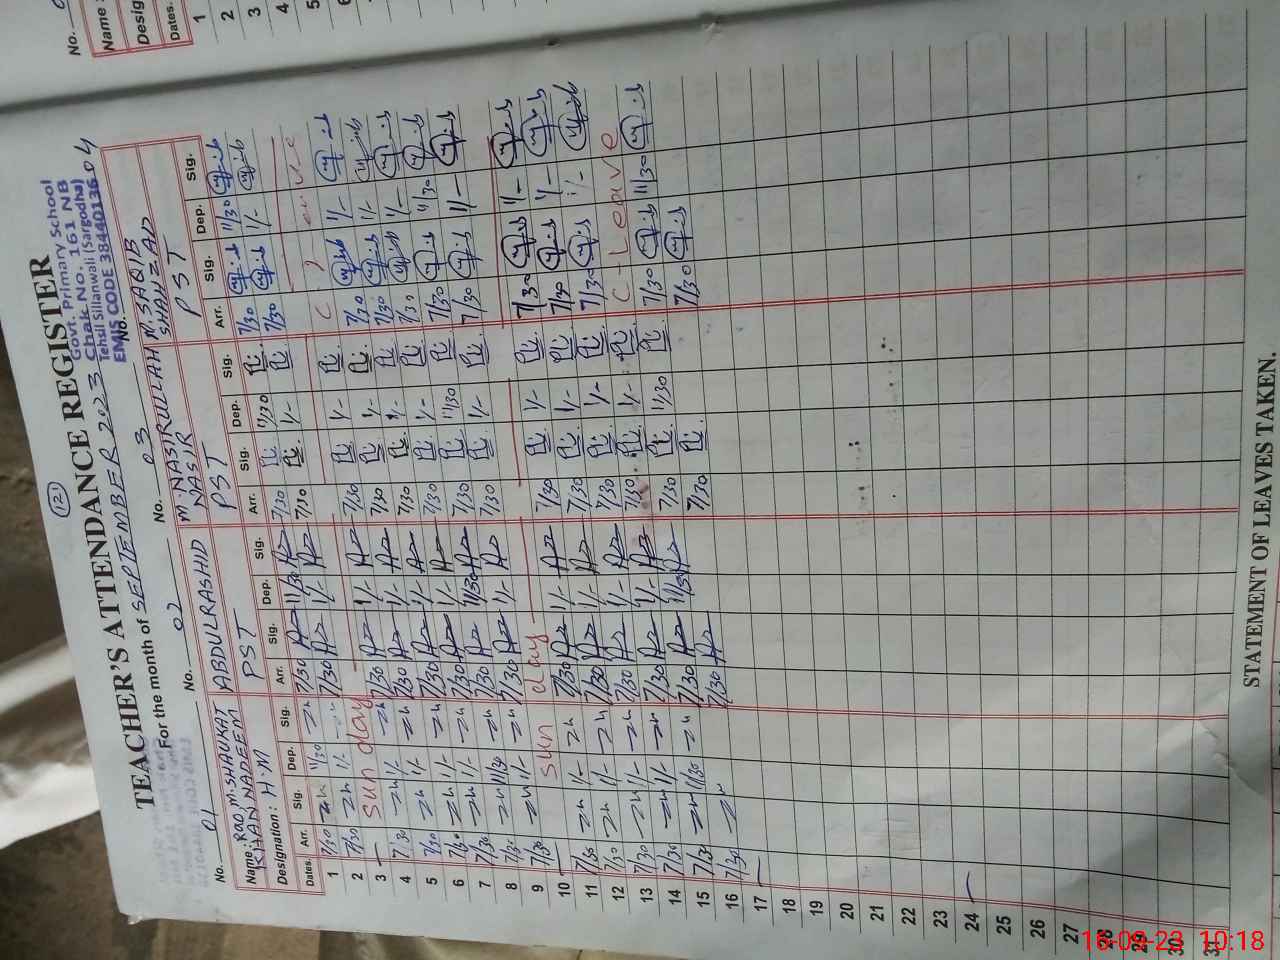 (12)
TEACHER'S ATTENDANCE REGISTER
For the month of SEPTEMBER 2023
Govt. Primary School
Chak No. 161 NB
Tehsil Sillanwali (Sargodha)
EMIS CODE 38440136 04
No. 01 No. 02 No. 03 No. 04
Name: RAO M. SHAUKAT KHAN NADEEM
ABDULRASHID
M. NASIRULLAH NASIR
M. SAQIB SHAHZAD
Designation: H.M PST PST PST
Dates. Arr. Sig. Dep. Sig. Arr. Sig. Dep. Sig. Arr. Sig. Dep. Sig. Arr. Sig. Dep. Sig.
1 7/30 11/30 7/30 11/30 7/30 11/30 7/30 11/30
2 7/30 1/- 7/30 1/- 7/30 1/- 7/30 1/-
3 — Sunday
4 7/30 1/- 7/30 1/- 7/30 1/-
5 7/30 1/- 7/30 1/- 7/30 1/- 7/30 1/-
6 7/30 1/- 7/30 1/- 7/30 1/- 7/30 1/-
7 7/30 1/- 7/30 1/- 7/30 1/- 7/30 1/-
8 7/30 11/30 7/30 11/30 7/30 11/30 7/30 11/30
9 7/30 1/- 7/30 1/- 7/30 1/- 7/30 1/-
10 Sunday
11 7/30 1/- 7/30 1/- 7/30 1/- 7/30 1/-
12 7/30 1/- 7/30 1/- 7/30 1/- 7/30 1/-
13 7/30 1/- 7/30 1/- 7/30 1/- 7/30 1/-
14 7/30 1/- 7/30 1/- 7/30 1/- C-Leave
15 7/30 11/30 7/30 11/30 7/30 11/30 7/30 11/30
16 7/30 7/30 7/30 7/30
17 —
18
19
20
21
22
23
24 —
25
26
27
28
29
30
31
STATEMENT OF LEAVES TAKEN.
No.
Name :
Desig
Dates.
1
2
3
4
5
16-09-23 10:18